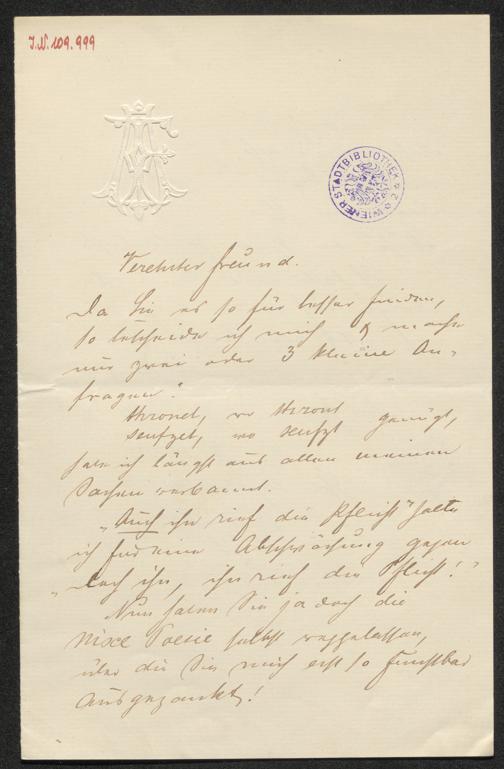 J.N. 109.999
WIENER STADTBIBLIOTHEK
Verehrter Freund.
Da Sie es so für besser finden,
so bescheide ich mich & mache
nur zwei oder 3 kleine An-
fragen.
thronet, wo thront
seufzet, wo seufzt genügt,
habe ich längst aus allen meinen
Sachen verbannt.
„Auch ihn rief die Pflicht" halte
ich für eine Abschwächung gegen
„doch ihn, ihn rief die Pflicht!"
Nun haben Sie ja doch die
Poesie selbst weggelassen,
über die Sie mich erst so furchtbar
ausgezankt!